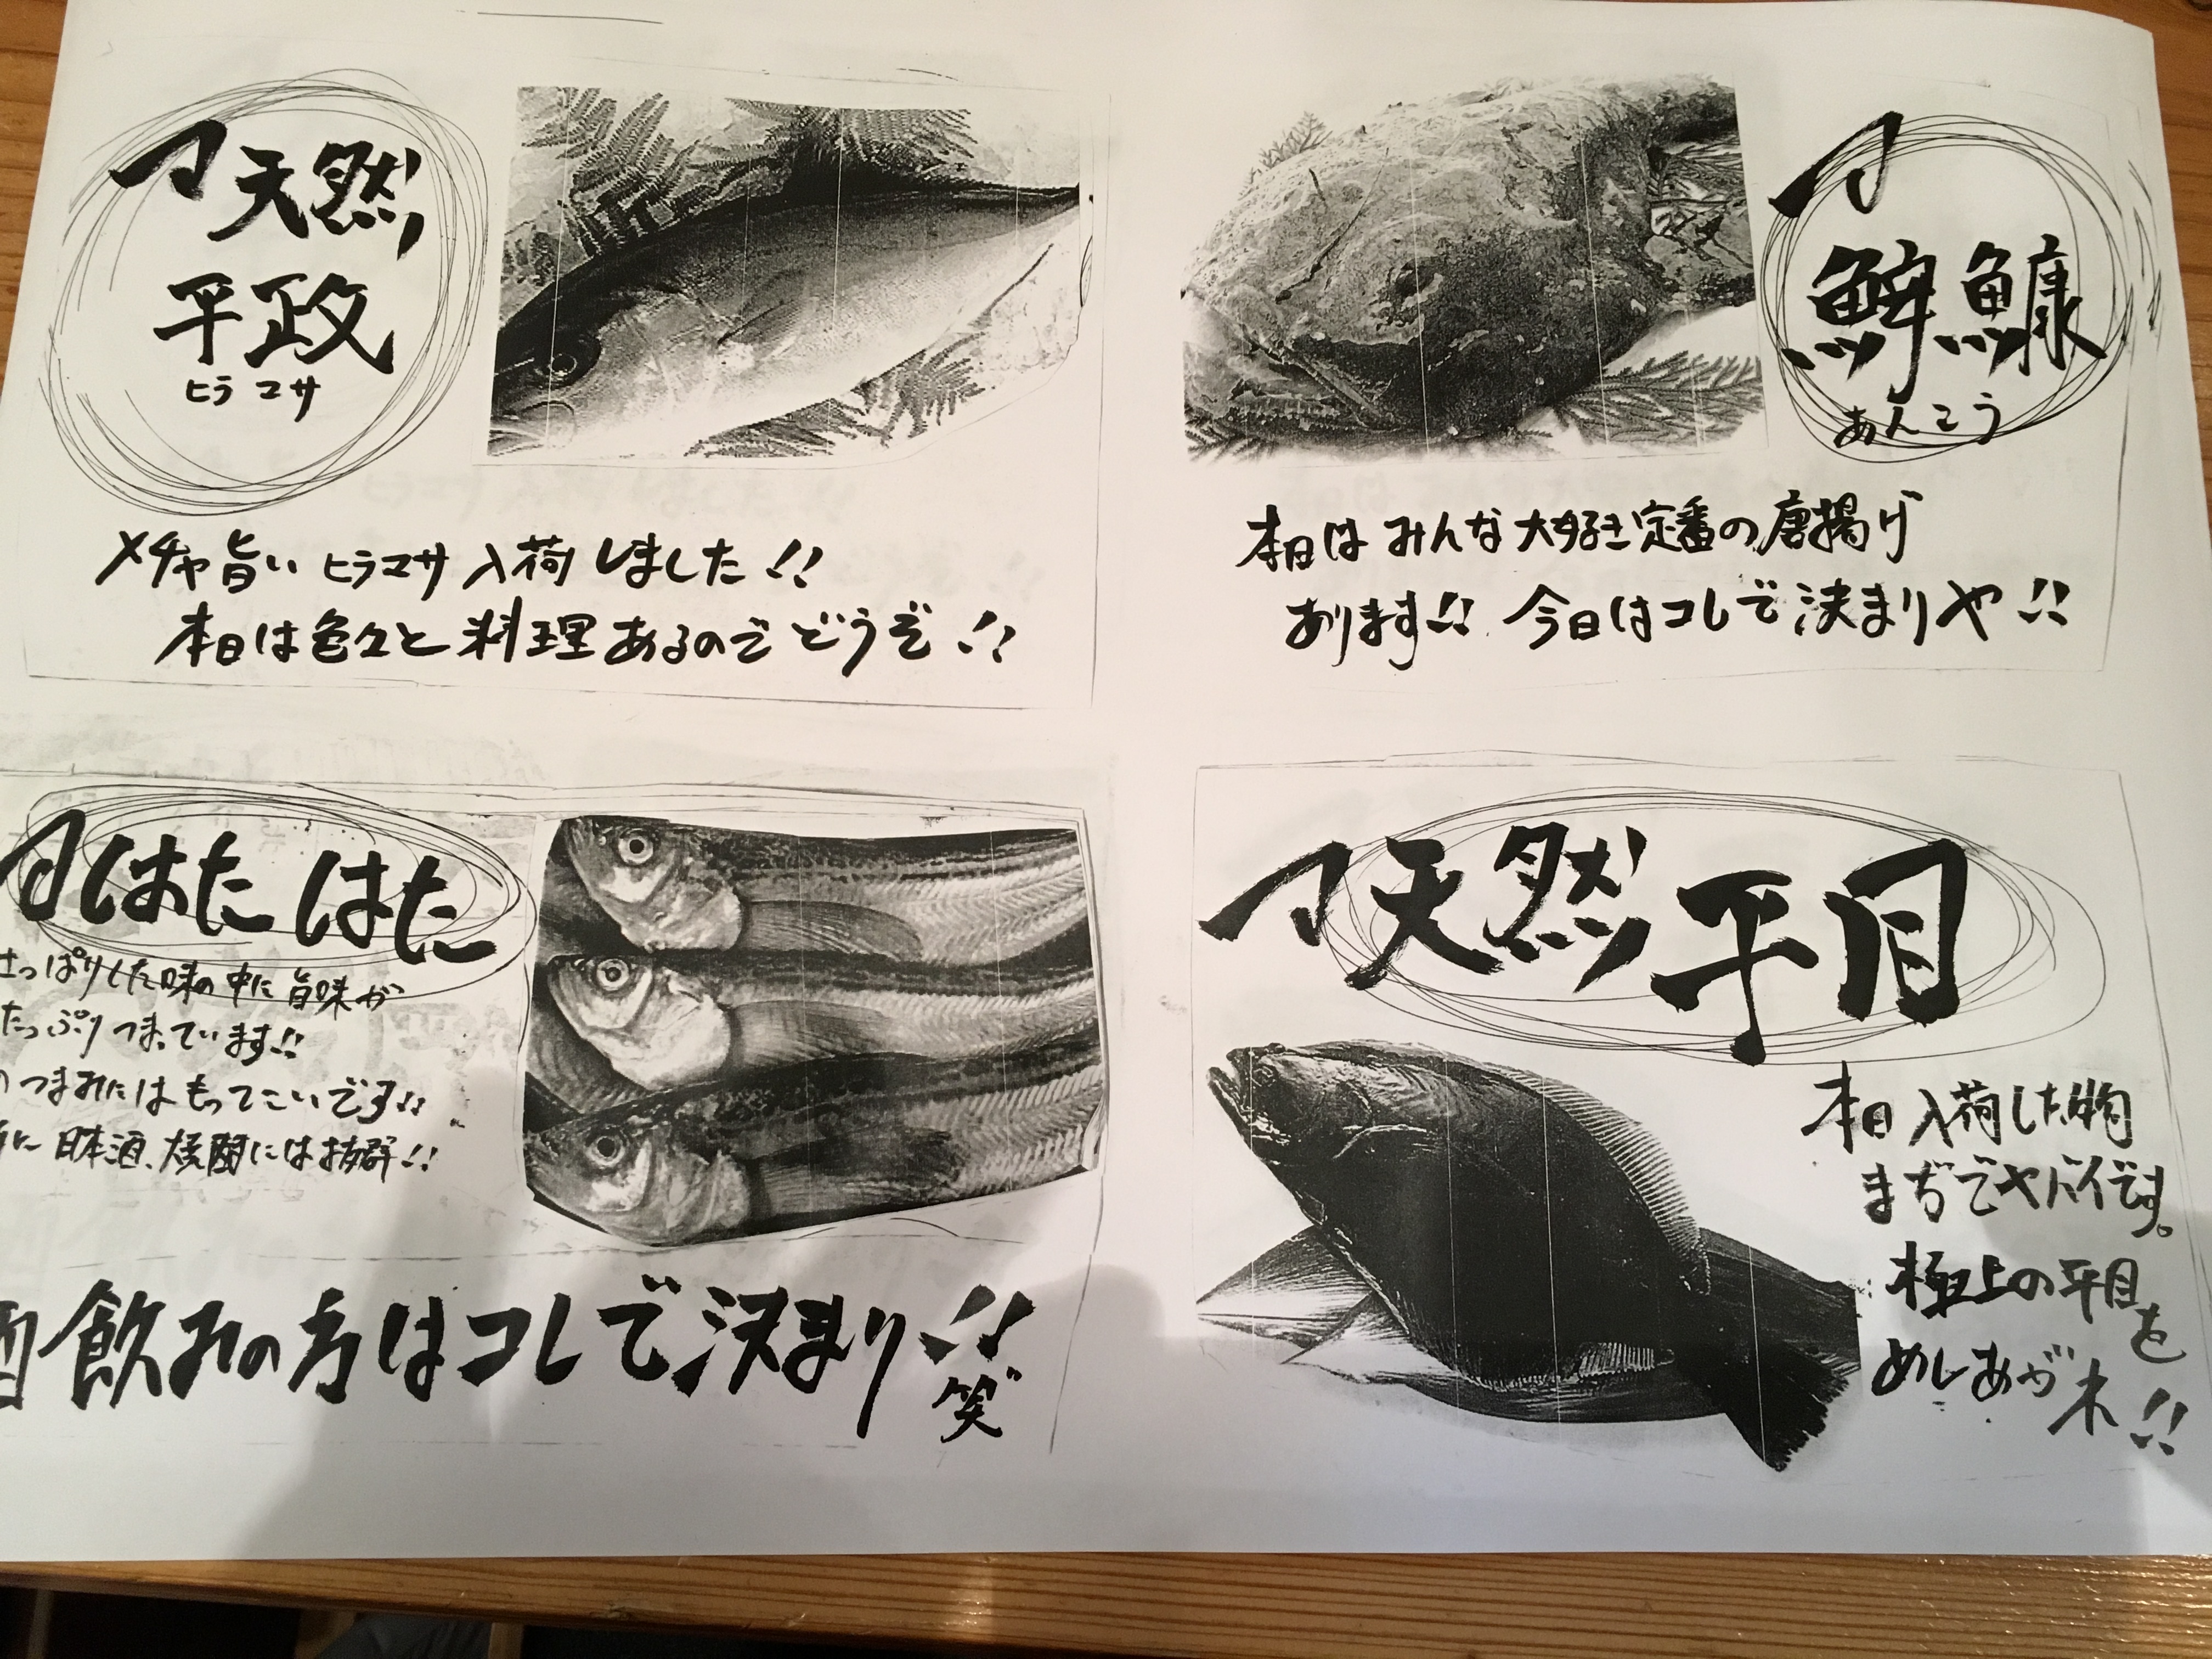 天然
平政
ヒラマサ
メチャ旨い ヒラマサ入荷しました!!
本日は色々と料理あるのでどうぞ!!
鮟鱇
あんこう
本日はみんな大好き定番の唐揚げ
あります!! 今日はコレで決まりや!!
はたはた
さっぱりした味の中に旨味が
たっぷりつまっています!!
つまみにはもってこいです!!
に日本酒、焼酎には抜群!!
酒飲みの方はコレで決まり!!
笑
天然平目
本日入荷した物
まぢでヤバイです。
極上の平目を
めしあがれ!!